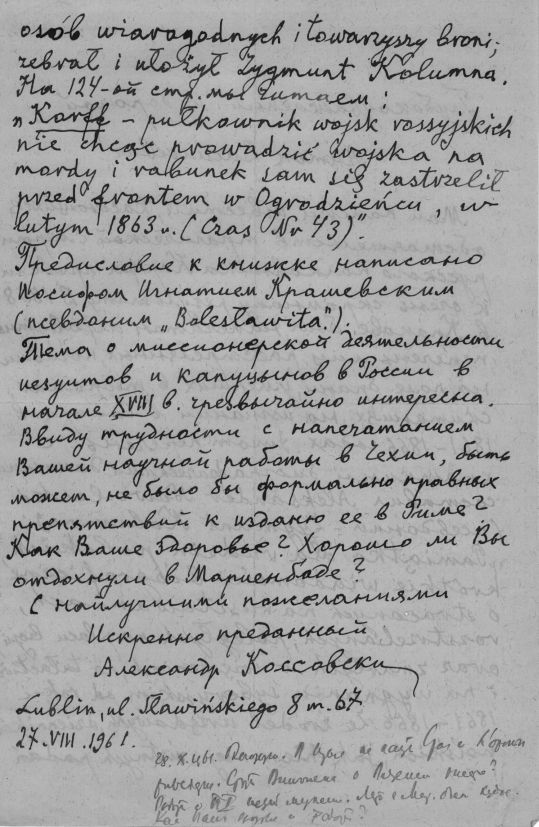 osób wiarogodnych i towarzyszy broni;
zebrał i ułożył Zygmunt Kolumna.
На 124-ой стр. мы читаем:
„Korff – pułkownik wojsk rossyjskich
nie chcąc prowadzić wojska na
mordy i rabunek sam się zastrzelił
przed frontem w Ogrodzieńcu, w
lutym 1863 r. (Czas Nr 43)".
Предисловие к книжке написано
Иосифом Игнатием Крашевским
(псевдоним „Bolesławita").
Тема о миссионерской деятельности
иезуитов и капуцынов в России в
начале XVIII в. чрезвычайно интересна.
Ввиду трудности с напечатанием
Вашей научной работы в Чехии, быть
может, не было бы формально правных
препятствий к изданю ее в Риме?
Как Ваше здоровье? Хорошо ли Вы
отдохнули в Мариенбаде?
С найлучшими пожеланиями
Искренно преданный
Александр Коссовски
Lublin, ul. Sławińskiego 8 m. 67
27.VIII.1961.